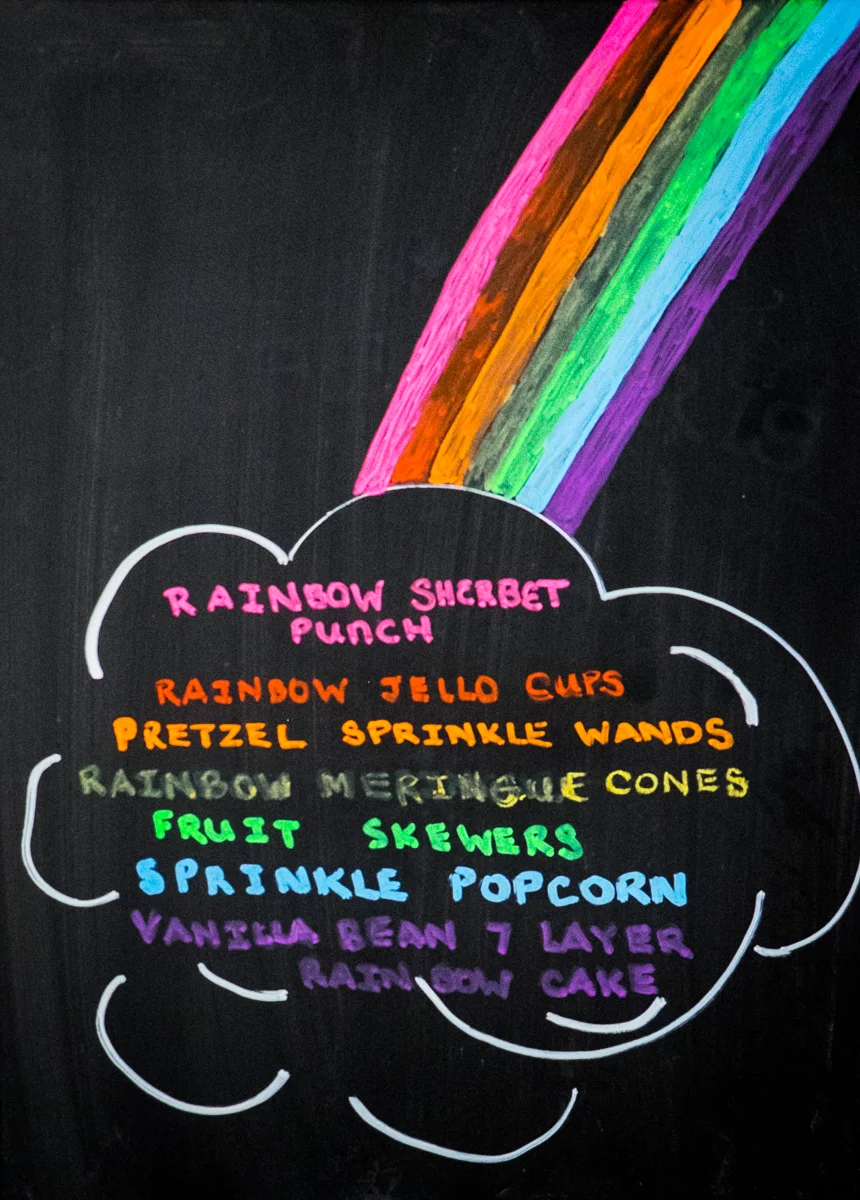 RAINBOW SHERBET
PUNCH
RAINBOW JELLO CUPS
PRETZEL SPRINKLE WANDS
RAINBOW MERINGUE CONES
FRUIT SKEWERS
SPRINKLE POPCORN
VANILLA BEAN 7 LAYER
RAINBOW CAKE